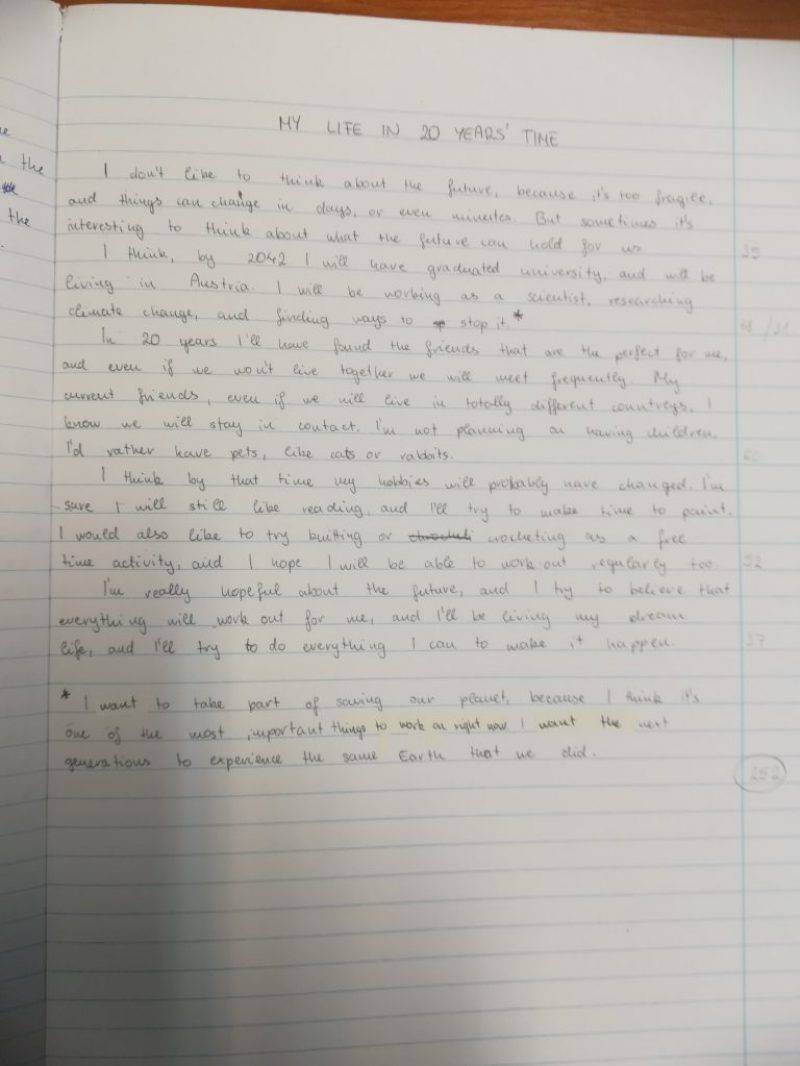 MY LIFE IN 20 YEARS' TIME
I don't like to think about the future, because it's too fragile,
and things can change in days, or even minutes. But sometimes it's
interesting to think about what the future can hold for us
I think, by 2042 I will have graduated university, and will be
living in Austria. I will be working as a scientist, researching
climate change, and finding ways to stop it.*
In 20 years I'll have found the friends that are the perfect for me,
and even if we won't live together we will meet frequently. My
current friends, even if we will live in totally different countreys, I
know we will stay in contact. I'm not planning on having children,
I'd rather have pets, like cats or rabbits.
I think by that time my hobbies will probably have changed. I'm
sure I will still like reading, and I'll try to make time to paint.
I would also like to try knitting or crocheting as a free
time activity, and I hope I will be able to work out regularly too.
I'm really hopeful about the future, and I try to believe that
everything will work out for me, and I'll be living my dream
life, and I'll try to do everything I can to make it happen.
* I want to take part of saving our planet, because I think it's
one of the most important things to work on right now. I want the next
generations to experience the same Earth that we did.
the
the
252